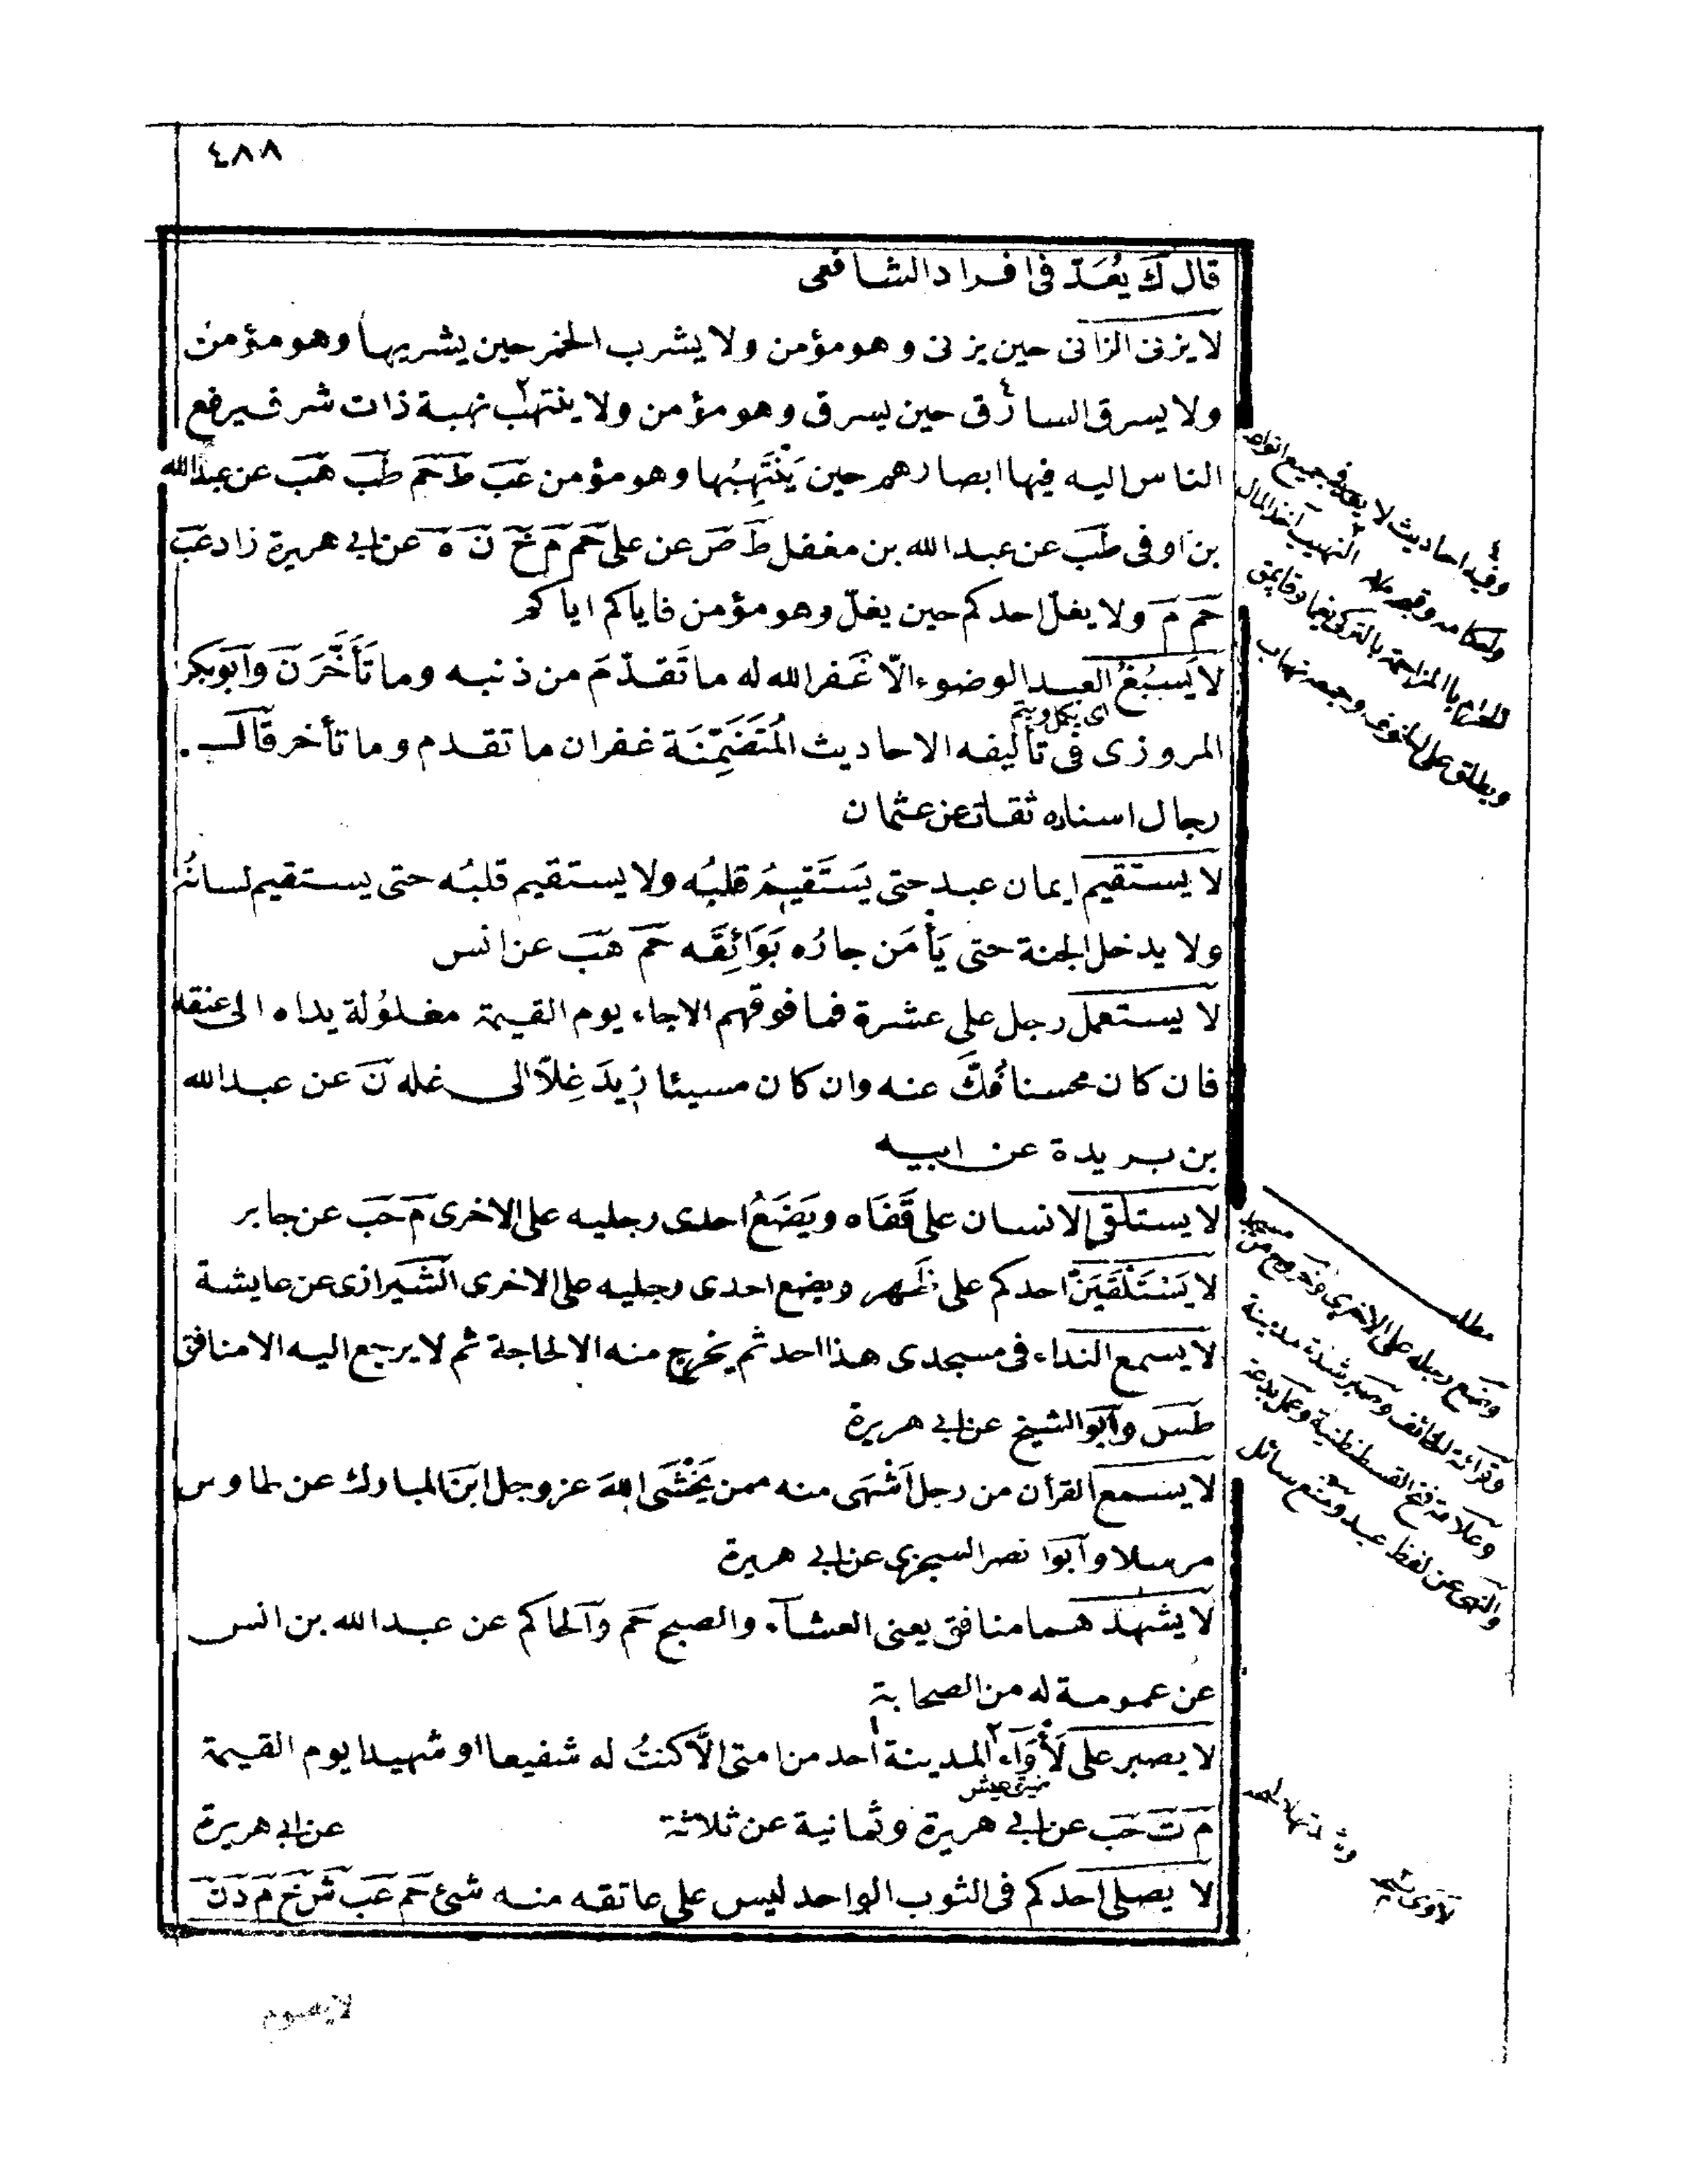 ٤٨٨
قال ك يُعَدّ فى افراد الشافعى
لا يزنى الزانى حين يزنى وهو مؤمن ولا يشرب الخمر حين يشربها وهو مؤمن
ولا يسرق السارق حين يسرق وهو مؤمن ولا ينتهب نهبة ذات شرف يرفع
الناس اليه فيها ابصارهم حين يَنْتَهِبُها وهو مؤمن عب ط حم طب هب عن عبد الله
بن اوفى طب عن عبد الله بن مغفل ط ص عن على حم م خ ن ه عن ابى هريرة زاد عب
حم م ولا يغلّ احدكم حين يغلّ وهو مؤمن فاياكم اياكم
لا يَسبُغُ العبد الوضوء الّا غَفر الله له ما تَقدّمَ من ذنبه وما تَأَخَّرَ ن وابوبكر
اى يكمل ويتم
المروزى فى تأليفه الاحاديث المُتَضَمِّنَة غفران ما تقدم وما تأخر قال
رجال اسناده ثقات عن عثمان
لا يستقيم ايمان عبد حتى يَسْتَقيمُ قلبُه ولا يستقيم قلبُه حتى يستقيم لسانُه
ولا يدخل الجنة حتى يَأمَن جارُه بَوَائِقَه حم هب عن انس
لا يستعمل رجل على عشرة فما فوقهم الا جاء يوم القيمة مغلولة يداه الى عنقه
فان كان محسنا فُكَّ عنه وان كان مسيئا زِيدَ غِلّاً الى غله ن عن عبد الله
بن بريدة عن ابيه
لا يستلقى الانسان على قَفَاه ويَضَعُ احدى رجليه على الاخرى م حب عن جابر
لا يَسْتَلْقَيَنَّ احدكم على ظهر ويضع احدى رجليه على الاخرى الشيرازى عن عايشة
لا يسمع النداء فى مسجدى هذا احد ثم يخرج منه الا لحاجة ثم لا يرجع اليه الا منافق
طس وابو الشيخ عن ابى هريرة
لا يسمع القرأن من رجل اَشْهَى منه ممن يَخْشَى اللهَ عز وجل ابن المبارك عن طاوس
مرسلا وابوا نصر السجزى عن ابى هريرة
لا يشهد هما منافق يعنى العشآء والصبح حم والحاكم عن عبد الله بن انس
عن عمومة له من الصحابة
لا يصبر على لَأوَاء المدينة احد من امتى الّا كنتُ له شفيعا او شهيدا يوم القيمة
م ت حب عن ابى هريرة وثمانية عن ثلاثة عن ابى هريرة
لا يصلى احدكم فى الثوب الواحد ليس على عاتقه منه شئ حم عب ش خ م د ن
لا يصوم
مطلب
وضع رجله على الاخرى
وعلامة فتح القسطنطنية
والنهى عن لفظ عبد ومنع سائل